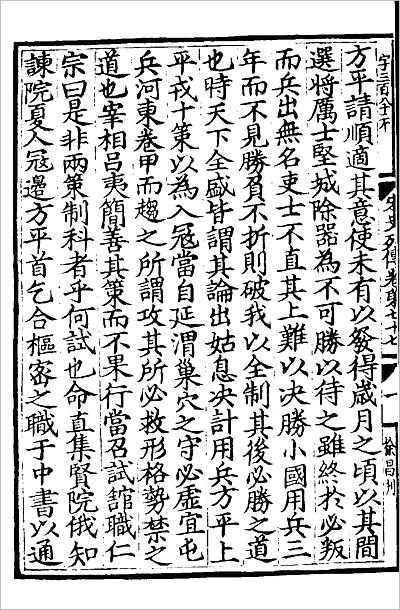 字三百全不
宋史列傳卷第七十七
一
方平請順適其意使未有以發得歲月之頃以其間
選將厲士堅城除器為不可勝以待之雖終於必叛
而兵出無名吏士不直其上難以决勝小國用兵三
年而不見勝負不折則破我以全制其後必勝之道
也時天下全盛皆謂其論出姑息决計用兵方平上
平戎十策以為入冦當自延渭巢穴之守必虛宜屯
兵河東卷甲而趨之所謂攻其所必救形格勢禁之
道也宰相呂夷簡善其策而不果行當召試舘職仁
宗曰是非兩策制科者乎何試也命直集賢院俄知
諫院夏人冦邊方平首乞合樞密之職于中書以通